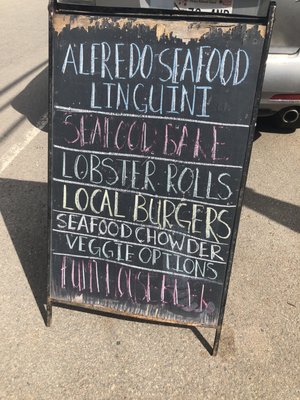 ALFREDO SEAFOOD
LINGUINI
SEAFOOD BAKE
LOBSTER ROLLS
LOCAL BURGERS
SEAFOOD CHOWDER
VEGGIE OPTIONS